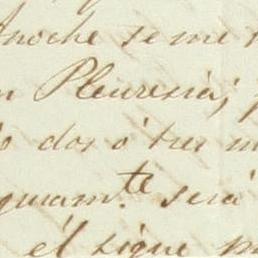 Anoche se me
Pleuresia;
dos ó tres
guram.te será
él sigue